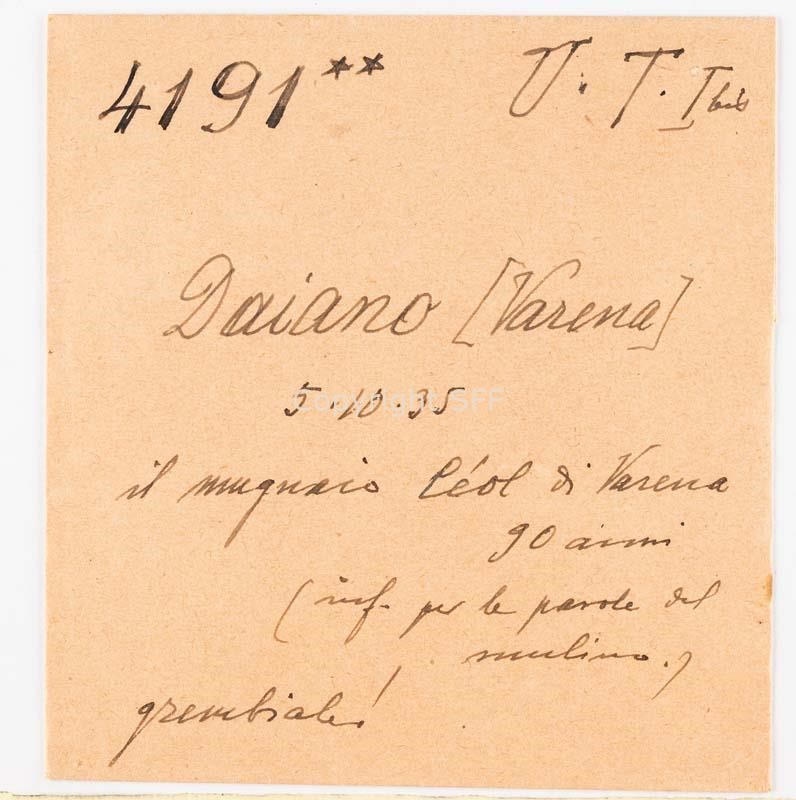 4191** U. T. I bis
Daiano [Varena]
5.10.35
Copyright SFF
il mugnaio Céol di Varena
90 anni
(inf. per le parole del
mulino.)
grembiale!